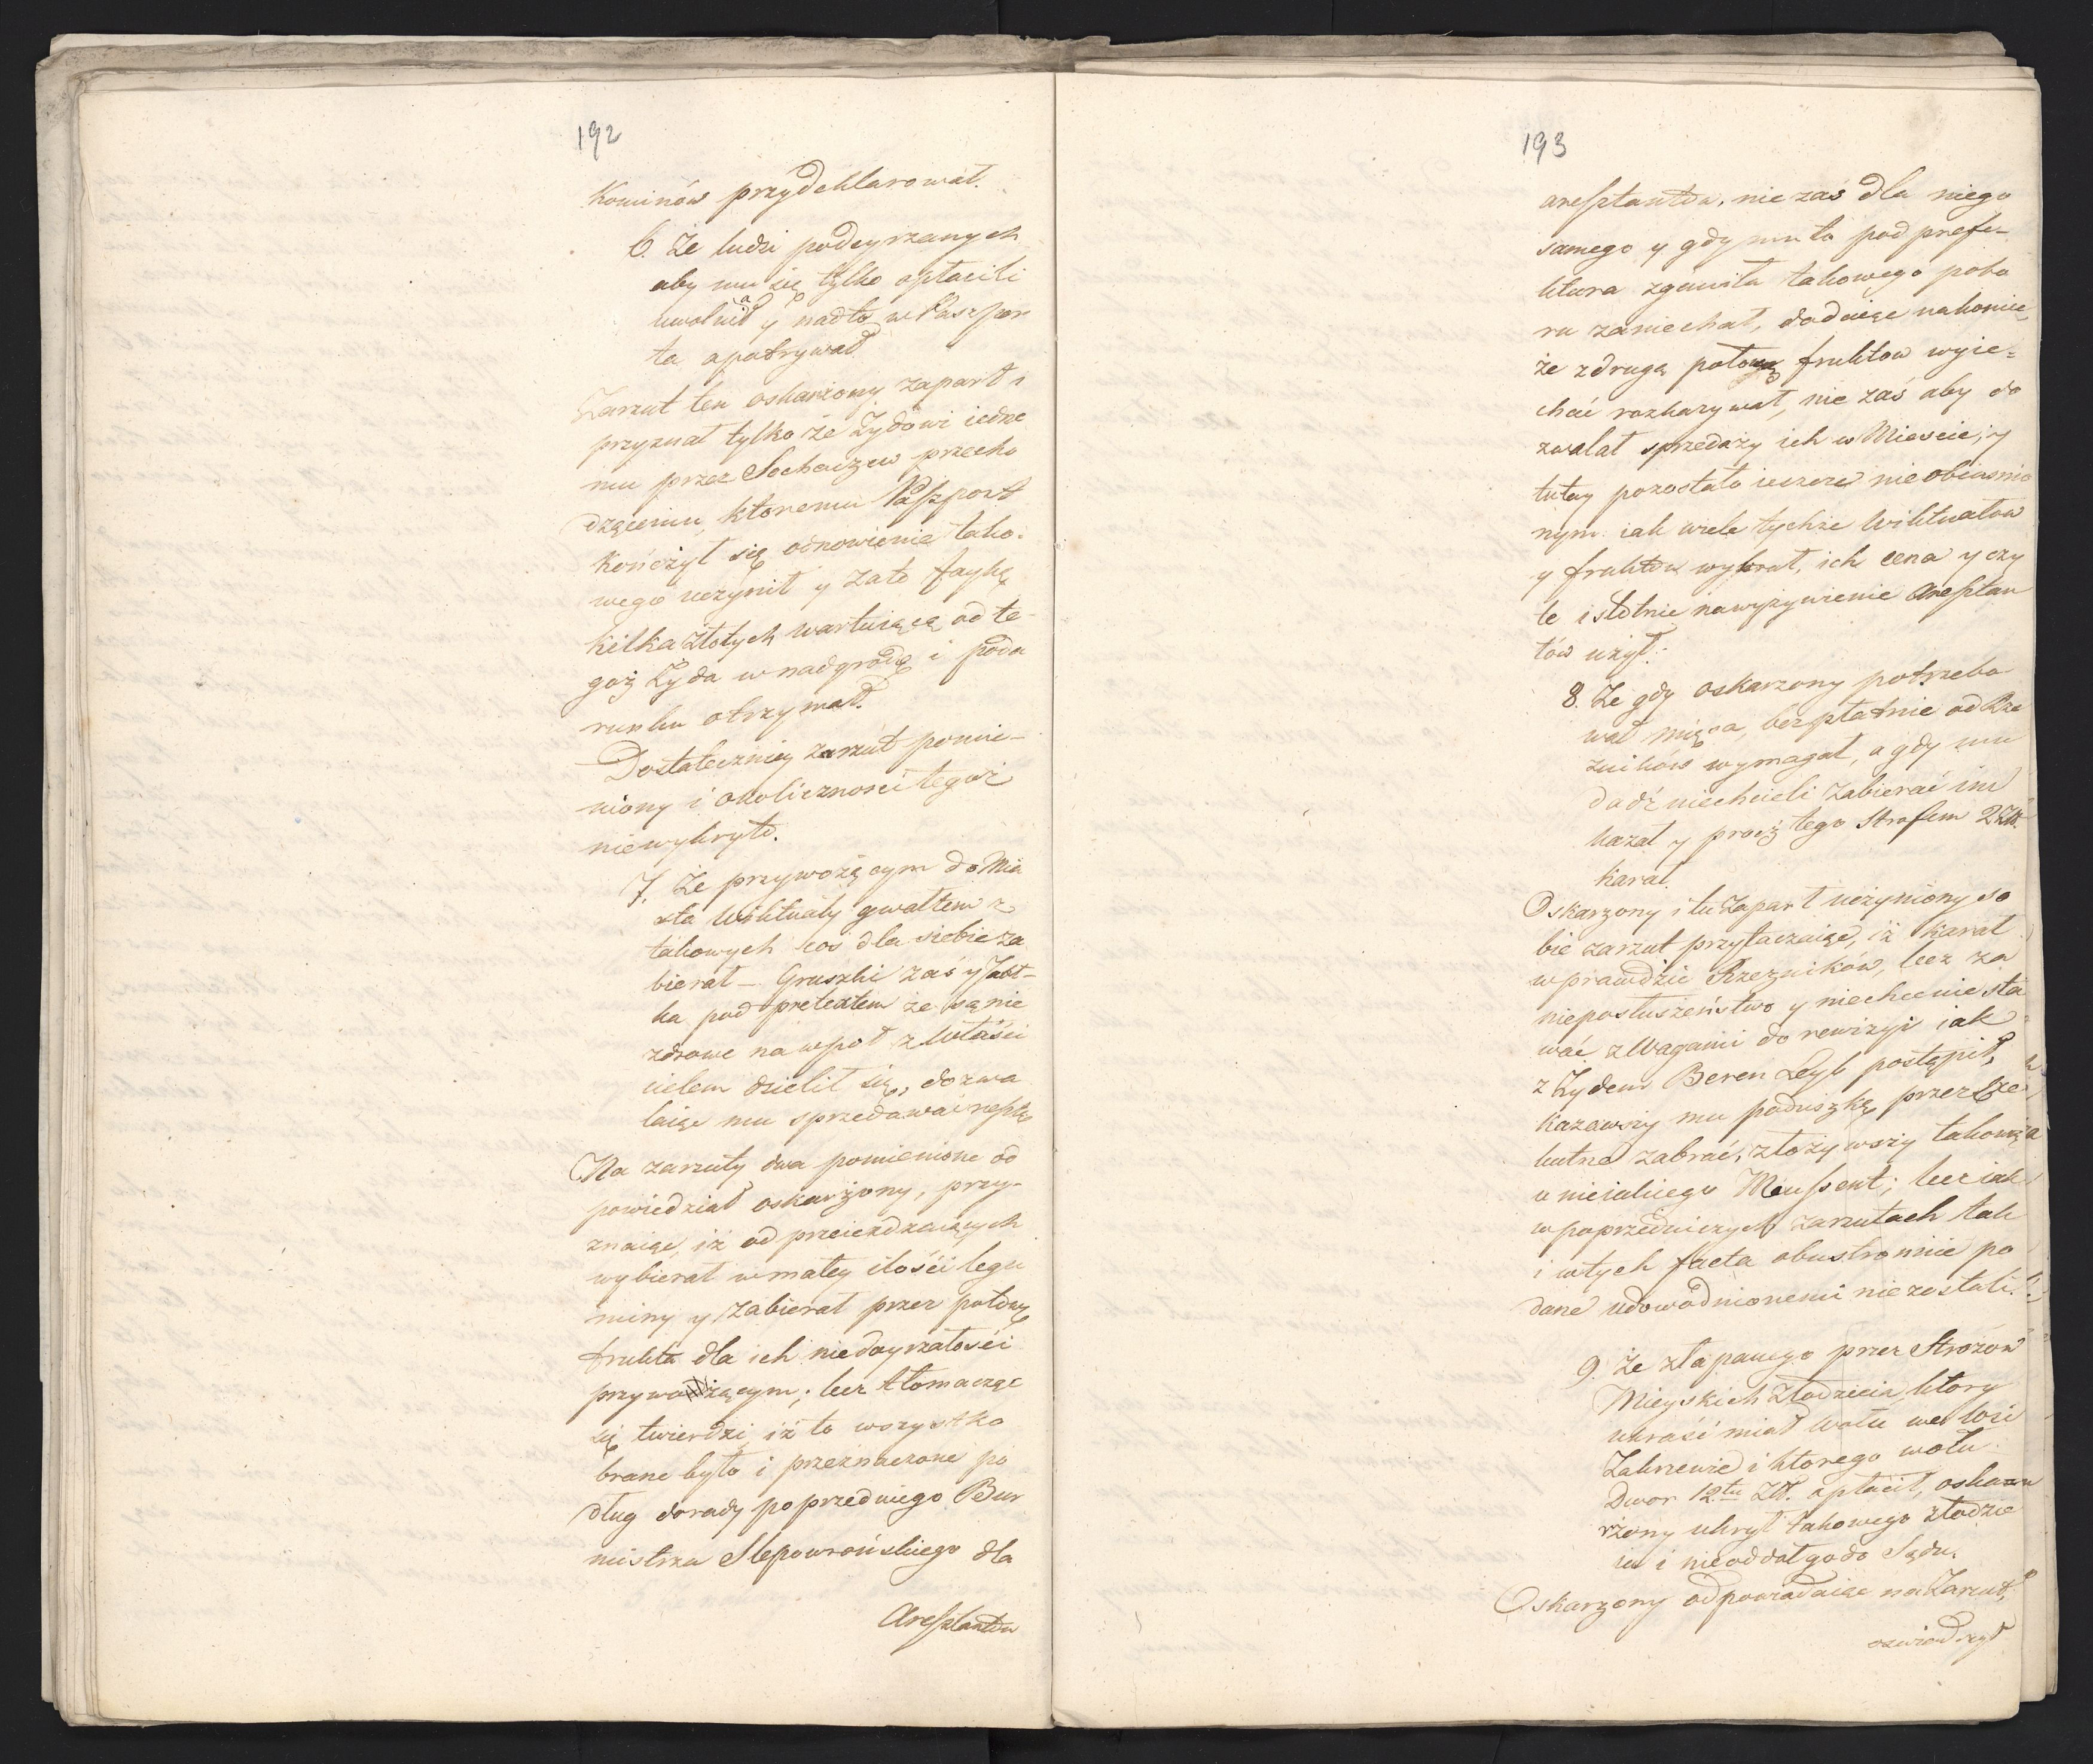 192
Kominów przydeklarował.
6. Że ludzi podeyrzanych
aby mu się tylko opłacili
uwalniał y nadto w Paszpor
ta opatrywał
Zarzut ten oskarżony zaparł i
przyznał tylko że Żydowi iedne
mu przez Sochaczew przecho
dzącemu, ktoremu Paszport
kończył się odnowienie tako-
wego uczynił y zato faykę
kilka złotych wartuiącą od te-
goż Żyda w nadgrodę i poda
runku otrzymał.
Dostateczniey zarzut pomie-
niony i okoliczności tegoż
niewykryto.
7. Że przywożącym do Mia
sta Wiktuały gwałtem z
takowych coś dla siebie za
bierał – Gruszki zaś y Jabł-
ka pod pretextem że są nie
zdrowe na wpoł z Właści
cielem dzielił się, dozwa
laiąc mu sprzedawać resztę
Na zarzuty dwa pomienione od
powiedział oskarżony, przy-
znaiąc, iż od przeieżdzaiących
wybierał w małey ilości legu
miny y zabierał przez połowę
frukta dla ich niedoyrzałości
przywożącym; lecz tłomacząc
się twierdzi iż to wszystko
brane było i przeznaczone po
dług dorady poprzedniego Bur
mistrza Slepowrońskiego dla
Aresztantów
193
aresztantów, nie zaś dla niego
samego y gdy mu to podprefe-
ktura zganiła takowego pobo
ru zaniechał, dodaiąc nakoniec
że z drugą połową fruktow wyie-
chać rozkazywał, nie zaś aby do
zwalał sprzedaży ich w Miescie; y
tutay pozostało ieszcze nieobiasnio
nym iak wiele tychże Wiktuałow
y fruktów wybrał, ich cena y czy
te istotnie na wyżywienie Aresztan
tów użył:
8. Że gdy oskarzony potrzebo
wał mięsa, bezpłatnie od Rze
zników wymagał, a gdy mu
dadź niechcieli zabierać im
kazał y procz tego Strofem 2 Zł.
karał.
Oskarzony i tu zaparł uczyniony so
bie zarzut przytaczaiąc, iż karał
wprawdzie Rzezników, lecz za
nieposłuszeństwo y niechcenie sta
wać z Wagami do rewizyi iak
z Żydem Beren Leyb postąpił,
kazawszy mu poduszkę przez Exe
kutne zabrać, złożywszy takową
u nieiakiego Maussent; lecz iak
w poprzedniczych zarzutach tak
i w tych facta obustronnie po
dane udowodnionemi nie zostali.
9. Że złapanego przez Strożow
Mieyskich Złodzieia, ktory
ukraść miał wołu we Wsi
Zakrzewie i ktorego wołu
Dwor 12tu Zł. opłacił, oska
rżony ukrył takowego złodzie
ia i nie oddał go do Sądu.
Oskarzony odpowiadaiąc na Zarzut,
oswiadczył